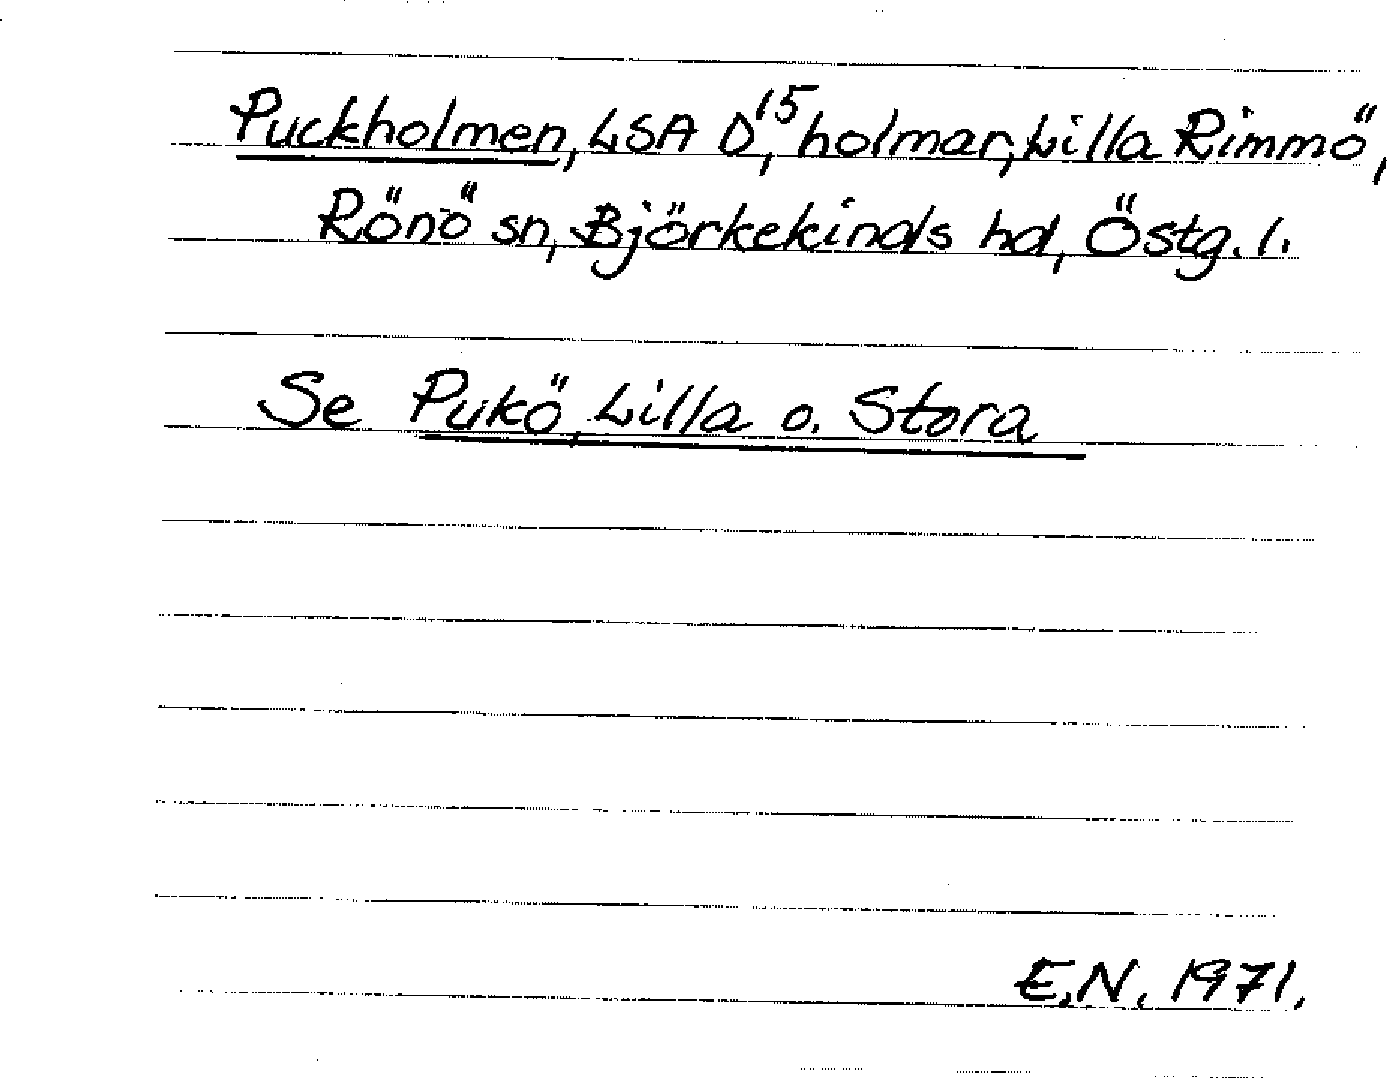 Puckholmen, LSA D¹⁵, holmar, Lilla Rimmö,
Rönö sn, Björkekinds hd, Östg. l.
Se Pukö, Lilla o. Stora
E.N. 1971.